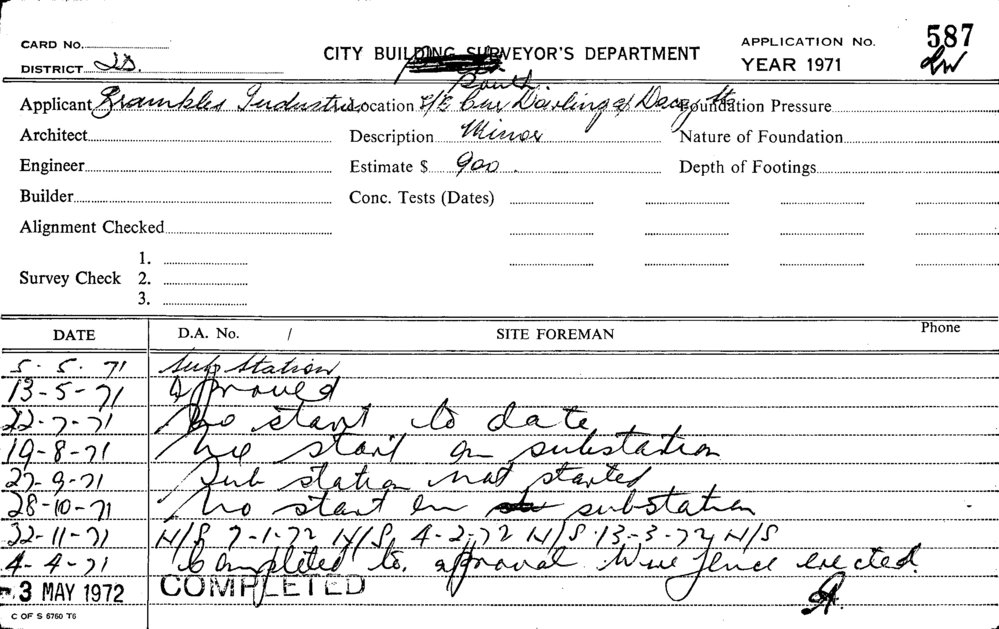 CARD No.
CITY BUILDING SURVEYOR'S DEPARTMENT
APPLICATION No. 587
DISTRICT
YEAR 1971
South
Applicant Brambles Industries Location S/E Cnr Darling & Dacey Foundation Pressure
Architect Description Minor Nature of Foundation
Engineer Estimate $ 900. Depth of Footings
Builder Conc. Tests (Dates)
Alignment Checked
1.
Survey Check 2.
3.
DATE D.A. No. / SITE FOREMAN Phone
5. 5. 71 Sub Station
13-5-71 Approved
22-7-71 No start to date
19-8-71 No start on substation
27-9-71 Sub station not started
28-10-71 No start on substation
22-11-71 N/S 7-1-72 N/S 4-2-72 N/S 13-3-72 N/S
4-4-71 Completed to approval Wire fence erected.
-3 MAY 1972 COMPLETED
C OF S 6760 T6